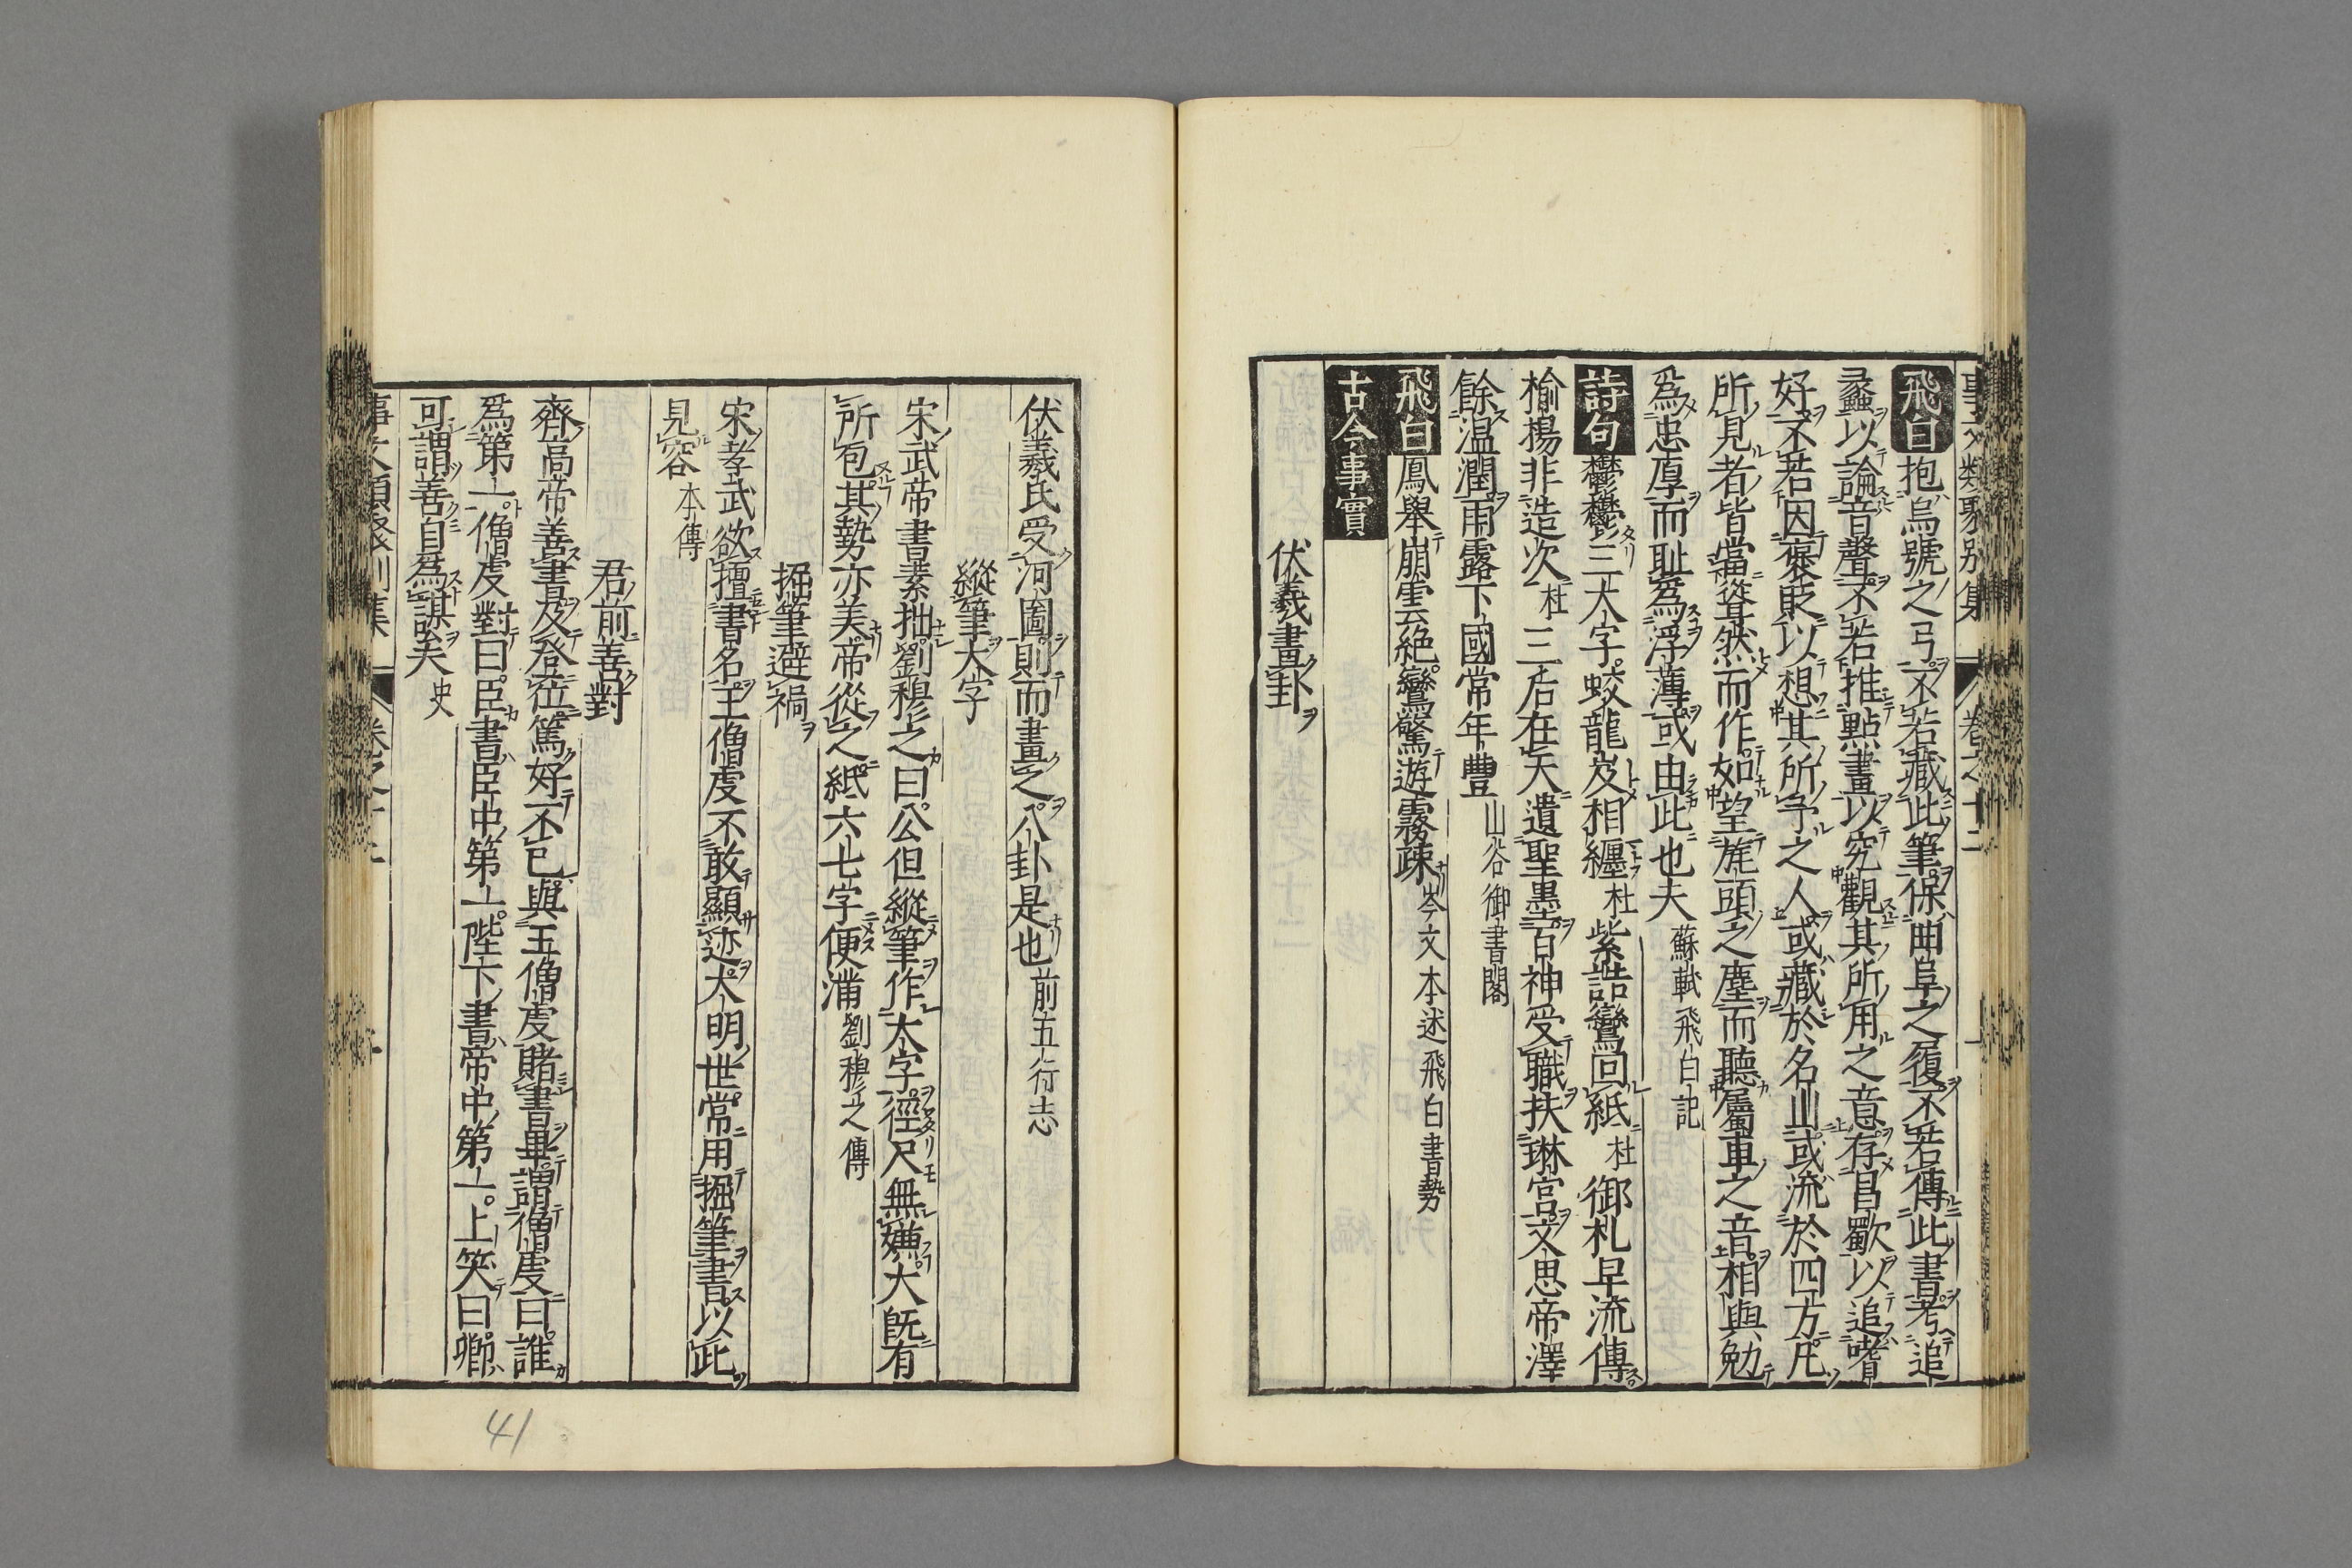 事文類聚別集 卷之十二
飛白抱烏號之弓不若藏此筆保曲阜之履不若傳此書考追
蠡以論音聲不若推點畫以究觀其所用之意存昌歜以追嗜
好不若因褒貶以想其所予之人或藏於名山或流於四方凡
所見者皆當聳然而作如望旄頭之塵而聽屬車之音相與勉
為忠厚而耻為浮薄或由此也夫蘇軾飛白記
詩句鬱鬱三大字蛟龍岌相纏杜紫誥鸞回紙杜御札早流傳
揄揚非造次杜三后在天遺聖墨百神受職扶琳宮文思帝澤
餘温潤雨露下國常年豐山谷御書閣
飛白鳳舉崩雲絶鸞驚遊霧疎岑文本述飛白書勢
古今事實
伏羲畫卦
伏羲氏受河圖則而畫之八卦是也前五行志
縱筆大字
宋武帝書素拙劉穆之曰公但縱筆作大字徑尺無嫌大既有
所包其勢亦美帝從之紙六七字便滿劉穆之傳
掘筆避禍
宋孝武欲擅書名王僧虔不敢顯迹大明世常用掘筆書以此
見容本傳
君前善對
齊高帝善書及登位篤好不已與王僧虔賭書畢謂僧虔曰誰
為第一僧虔對曰臣書臣中第一陛下書帝中第一上笑曰卿
可謂善自為謀矣史
事文類聚別集 卷之十二
41